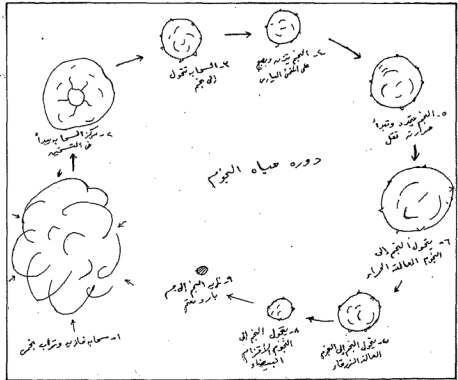 دورة حياة النجوم
١- سحاب غازى وتراب نجمى
٢- مركز السحاب يبدأ
فى التسخين
٣- السحاب تتحول
إلى نجم
٤- النجم
على
٥- النجم يتمدد وتبدأ
حرارته تقل
٦- يتحول النجم إلى
النجوم العمالقة الحمراء
٧- يتحول النجم إلى النجوم
العمالقة الزرقاء
٨- يتحول النجم إلى
النجوم الأقزام
البيضاء
٩- النجم إلى جسم
بارد معتم